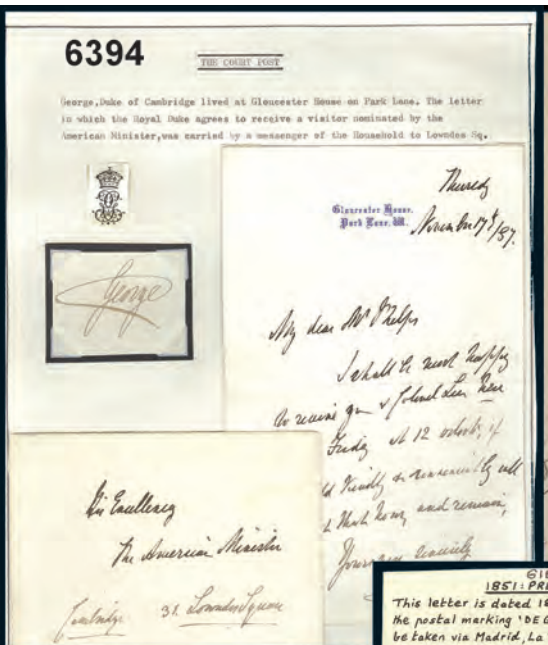 6394
THE COURT POST
George,Duke of Cambridge lived at Gloucester House on Park Lane. The letter
in which the Royal Duke agrees to receive a visitor nominated by the
American Minister,was carried by a messenger of the Household to Lowndes Sq.
George
Gloucester House.
Park Lane. W.
Thursdy
November 17th/87.
My dear Mr Phelps
I shall be most happy
to receive you & Colonel Lee here
Friday at 12 o'clock, if
kindly & conveniently call
at that hour, and remain,
Yours very sincerely
His Excellency
The American Minister
Cambridge 31. Lowndes Square
GIB
1851: PRE
This letter is dated 18
the postal marking 'DE G
be taken via Madrid, La